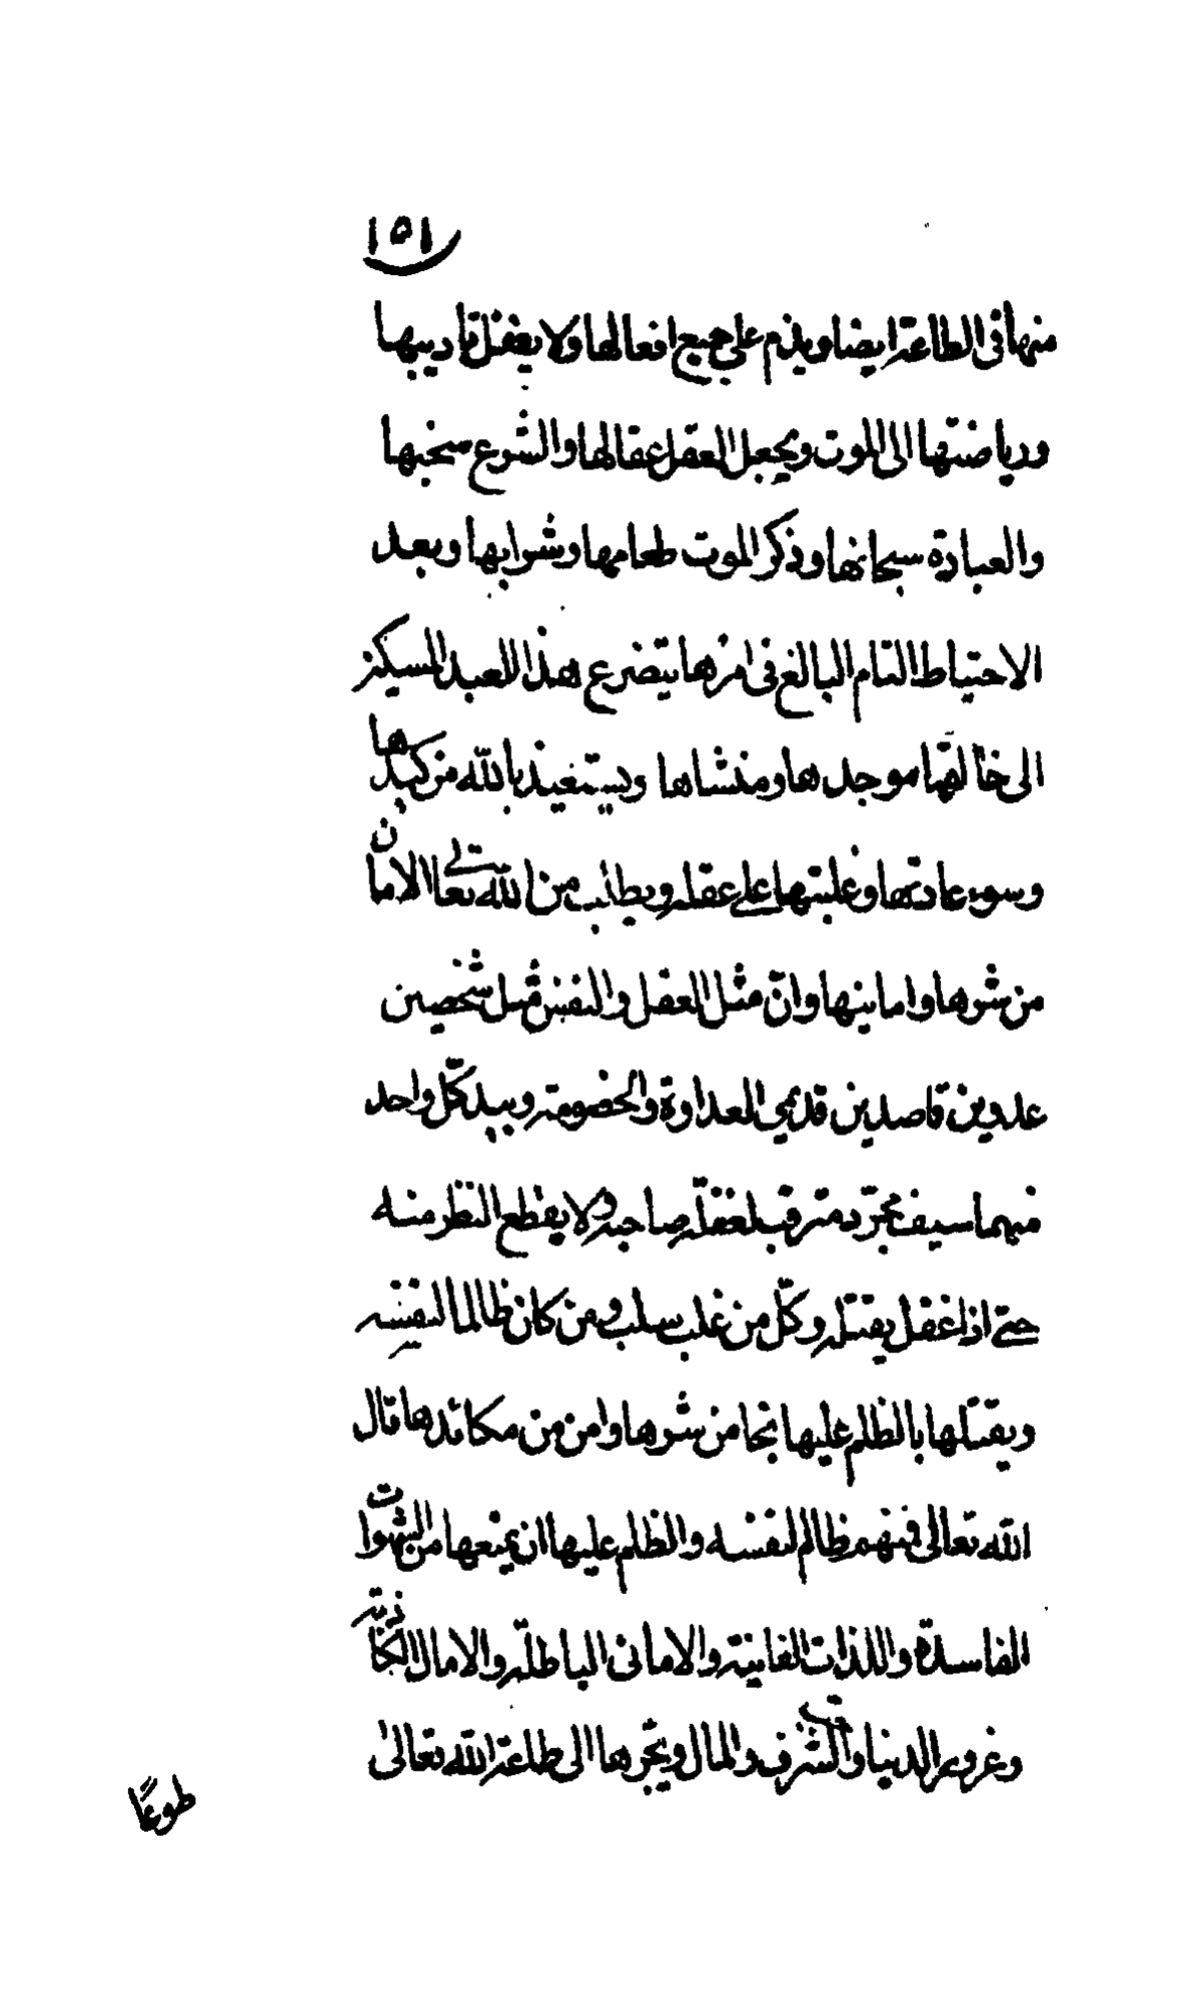 ١٥١
منها فى الطاعة ايضا ويذم على جميع افعالها ولا يغفل تاديبها
ورياضتها الى الموت ويجعل العقل عقالها والشرع سجنها
والعبادة سبحانها وذكر الموت طعامها وشرابها وبعد
الاحتياط التام البالغ فى امرها يتضرع هذا العبد المسكين
الى خالقها موجدها ومنشاها ويستغيذ بالله من كيدها
وسوء عادتها وغلبتها على عقله ويطلب من الله تعالى الامان
من شرها وامانيها وانّ مثل العقل والنفس مثل شخصين
عدوين قاصدين قديمي العداوة والخصومة وبيد كلّ واحد
منهما سيف مجرّد مترقب لغفلة صاحبه ولا يقطع النظر منه
حتى اذا غفل يقتله وكلّ من غلب سلب ومن كان ظالما لنفسه
ويقتلها بالظلم عليها نجا من شرها وامن من مكائدها قال
الله تعالى فمنهم ظالم لنفسه والظلم عليها ان يمنعها من الشهوات
الفاسدة واللذات الفانية والامانى الباطلة والامال الكاذبة
وغرور الدنيا والشرف والمال ويجرها الى طاعة الله تعالى
طوعًا